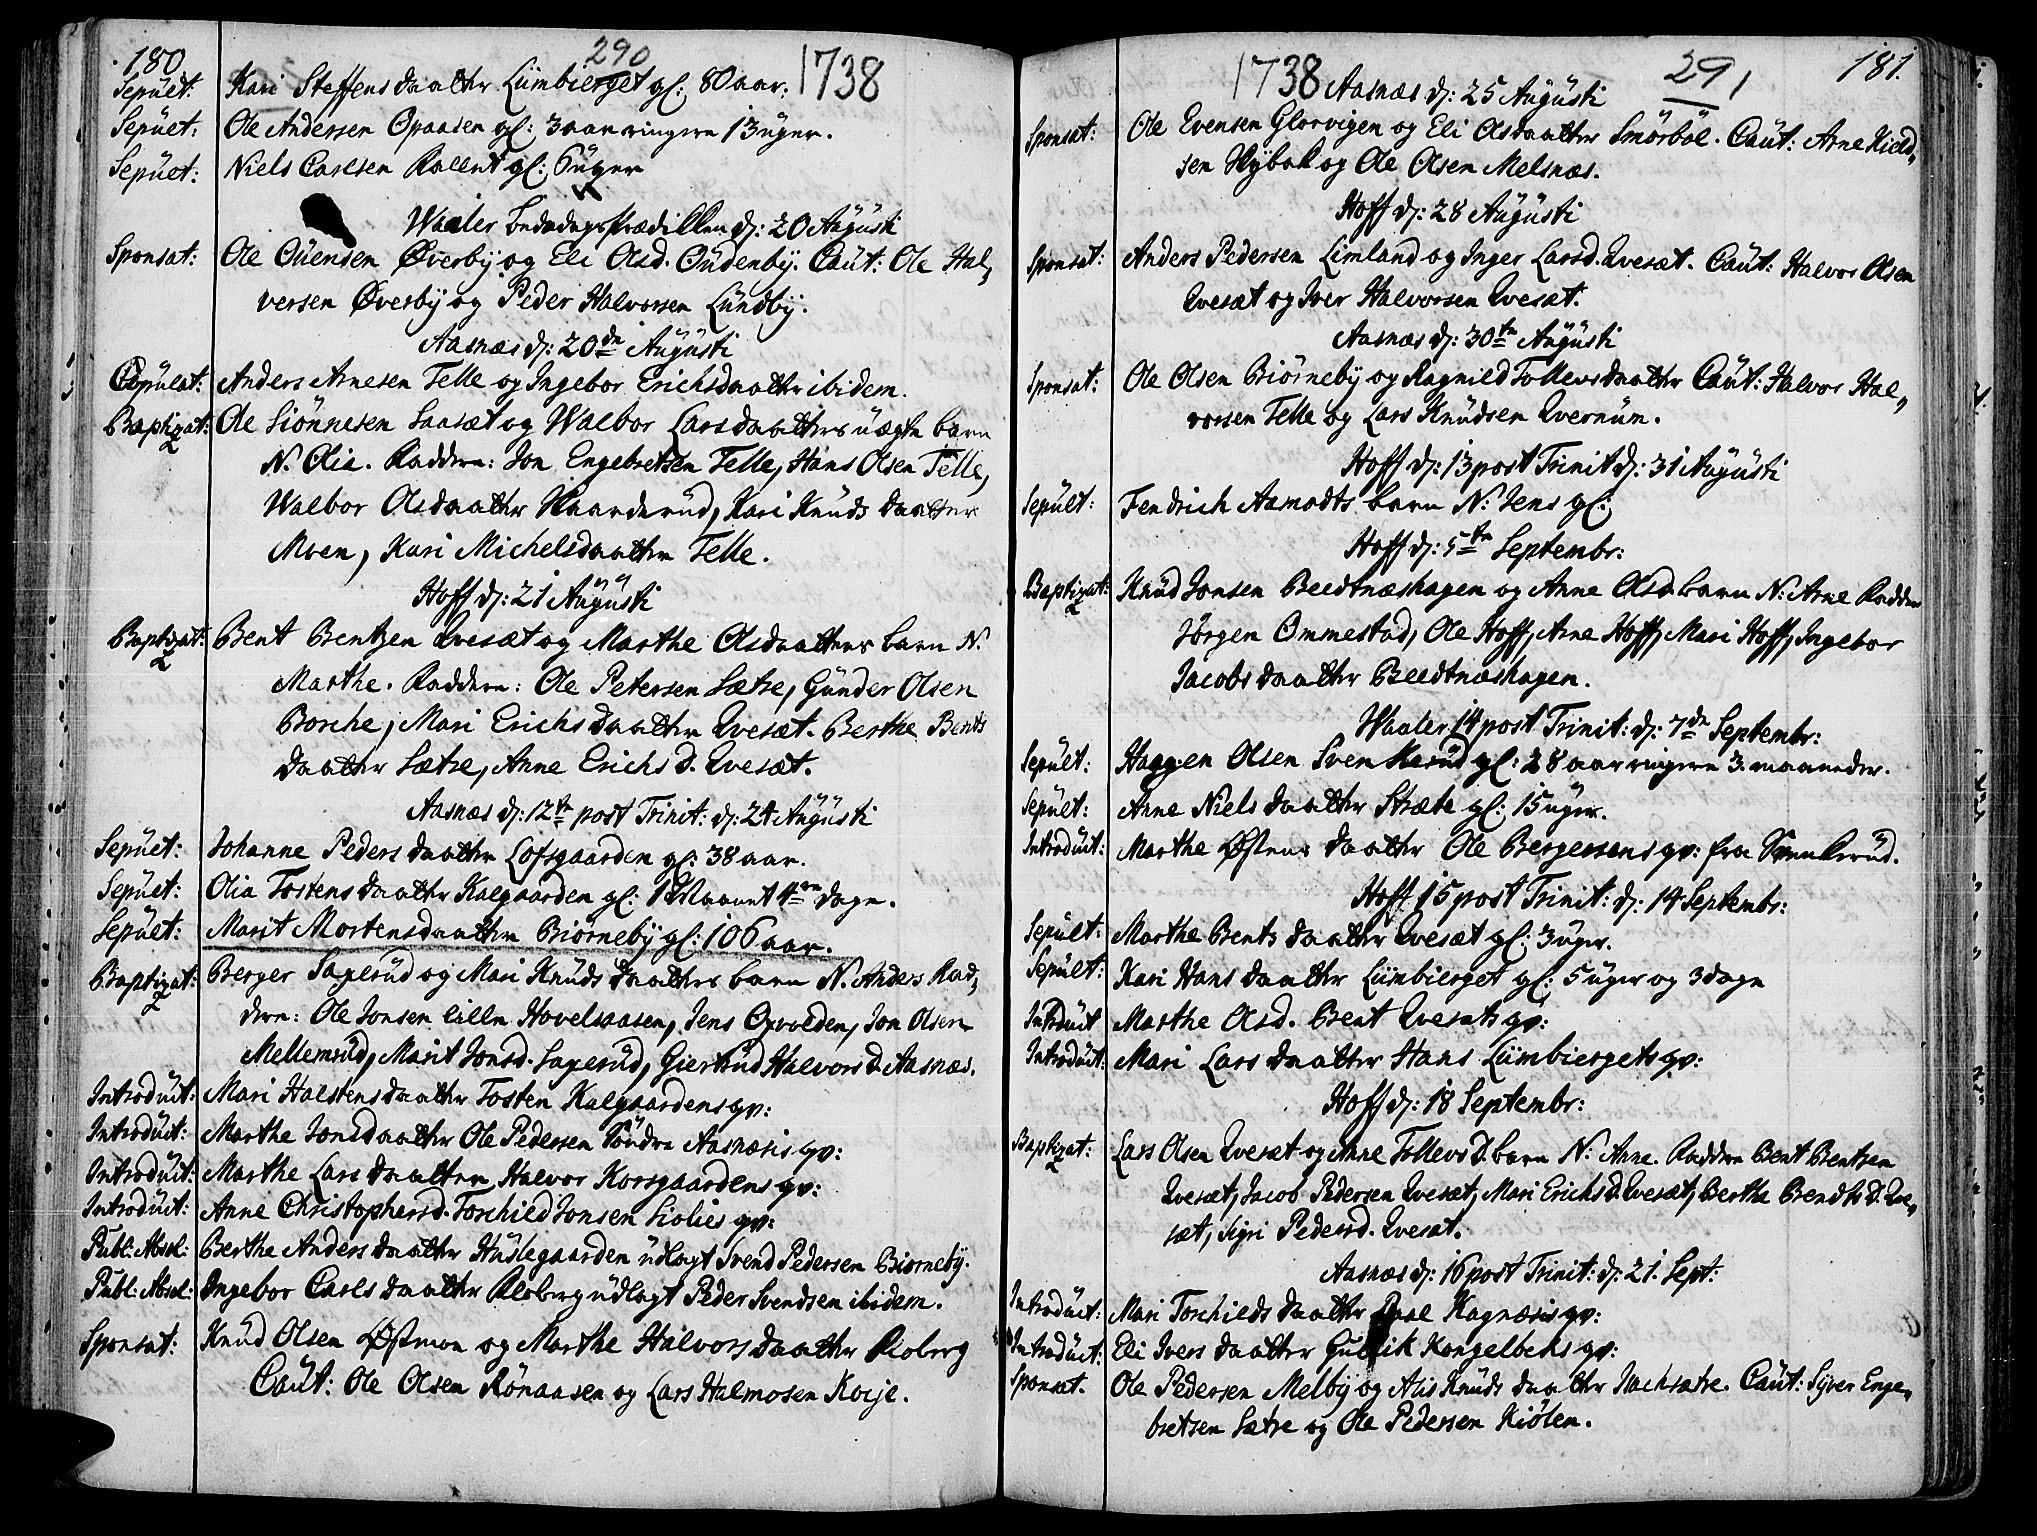 180
290
1738
Sepult: Kari Steffensdaatter Lümbierget gl: 80 aar.
Sepult: Ole Andersen Opaasen gl: 3 aar ringere 13 üger.
Sepült: Niels Carlsen gl: 6 üger
Waaler d: 20 Augüsti
Sponsat: Ole Øverby og Eli Olsd. Oüdenby. Caüt: Ole Hal,
versen Øverby og Peder Halvorsen Lündby.
Aasnæs d: 20de Aügüsti
Copulat: Anders Arnesen Telle og Ingebor Erichsdaatter ibidem.
Baptizat: Ole Siønnesen Saasæt og Walbor Larsdaatters üægte barn
N. Olia. Faddere: Jon Engebretsen Telle, Hans Olsen Telle,
Walbor Olsdaatter Haarderud, Kari Knüds daatter
Moen, Kari Michelsdaatter Telle.
Hoff d: 21 Aügüsti
Baptizat: Bent Bentzen Qvesæt og Marthe Olsdaatters barn N.
Marthe. Faddere: Ole Petersen Sætre, Günder Olsen
Borche, Mari Erichs daatter Qvesæt. Berthe Bents
daatter Sætre, Anne Erichs D. Qvesæt.
Aasnæs d: 12te post Trinit: d: 24 Aügüsti
Sepult: Johanne Peders daatter Lofsgaarden gl: 38 aar.
Sepult: Olia Tostens daatter Kalgaarden gl: 4re dage.
Sepült: Marit Mortensdaatter Biørneby gl: 106 aar.
Baptizat: Berger Sagerüd og Mari Knüds daatters barn N. Anders Fad,
dere: Ole Jonsen lille Hovelsaasen, Jens Opvolden, Jon Olsen
Mellemrüd, Marit Jonsd. Sagerüd, Giertrud Halvors D. Aasnæs.
Introdüit: Mari Halstensdaatter Tosten Kalgaardens qv:
Introdüit: Marthe Jonsdaatter Ole Pedersen Søndre Aasnæsis qv:
Introdüit: Marthe Lars daatter Halvor Korsgaardens qv:
Introdüit: Anne Christophersd. Torchild Jonsen Liolies qv:
Publ: Absol: Berthe Anders daatter Hüslegaarden üdlagt Svend Pedersen Biørneby.
Publ: Absol: Ingebor Carls daatter Kloberg üdlagt Peder Svendsen ibidem.
Sponsat: Knüd Olsen Østmoe og Marthe Halvors daatter Kloberg
Caüt: Ole Olsen Rönaasen og Lars Halmosen Koije.
1738
291
181.
Aasnæs d: 25 Aügüsti
Sponsat: Ole Evensen Glorvigen og Eli Olsdaatter Smörböl. Caüt: Arne Kield,
sen Hybol og Ole Olsen Melsnæs.
Hoff d: 28 Aügüsti
Sponsat: Anders Pedersen Limland og Inger Larsd. Qvesæt. Caüt: Halvor Olsen
Qvesæt og Iver Halvorsen Qvesæt.
Aasnæs d: 30te Aügüsti
Sponsat: Ole Olsen Biörneby og Ragnild Tollevsdaatter Caüt: Halvor Hal,
vorsen Telle og Lars Knüdsen Qvernüm.
Hoff d: 13 post Trinit d: 31 Aügüsti
Sepült: Fendrich Aamodts barn N: Jens gl:
Hoff d: 5te Septembr:
Baptizat: Knüd Jonsen Beedtnæshagen og Anne Olsd barn N: Arne Fadder
Jörgen Ommestad, Ole Hoff, Arne Hoff, Mari Hoff, Ingebor
Jacobs daatter Beedtnæshagen.
Waaler 14 post Trinit: d: 7de Septembr:
Sepült: Haagen Olsen Svenkerüd gl: 28 aar ringere 3 maaneder.
Sepült: Anne Niels daatter Stræte gl: 15 üger.
Introdüit: Marthe Østens daatter Ole Bergersens qv: fra Svenkerüd.
Hoff 15 post Trinit: d: 14 Septembr:
Sepült: Marthe Bents daatter Qvesæt gl: 3 üger.
Sepült: Kari Hans daatter Lümbierget gl: 5 üger og 3 dage
Introdüit Marthe Olsd. Bent Qvesæts qv:
Introdüit: Mari Lars daatter Hans Lümbiergets qv:
Hoff d: 18 Septembr:
Baptizat: Lars Olsen Qvesæt og Anne Tollevs D. barn N: Anne. Faddere Bent Bentzen
Qvesæt, Jacob Pedersen Qvesæt, Mari Erichs D. Qvesæt, Berthe Brendts D. Qve,
sæt, Sigri Pedersd. Qvesæt.
Aasnæs d: 16 post Trinit: d: 21. Sept:
Introdüit: Mari Torchilds daatter Poul Kagnæsis qv:
Introdüit: Eli Ivers daatter Gullik Kongelbeks qv:
Sponsat. Ole Pedersen Melby og Alis Knüds daatter Nachsætre. Caüt: Syver Enge,
bretsen Sætre og Ole Pedersen Kiölen.